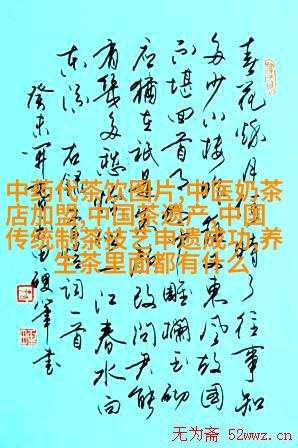 春花秋月何时了往事知
多少小楼昨夜又东风故国
不堪回首月明中雕栏玉砌
应犹在只是朱颜改问君能
有几多愁恰似一江春水向
东流 右录李煜词一首
癸未 硬笔书
中药代茶饮图片,中医奶茶
店加盟,中国茶遗产,中国
传统制茶技艺申遗成功,养
生茶里面都有什么
无为斋 52wwz.cn